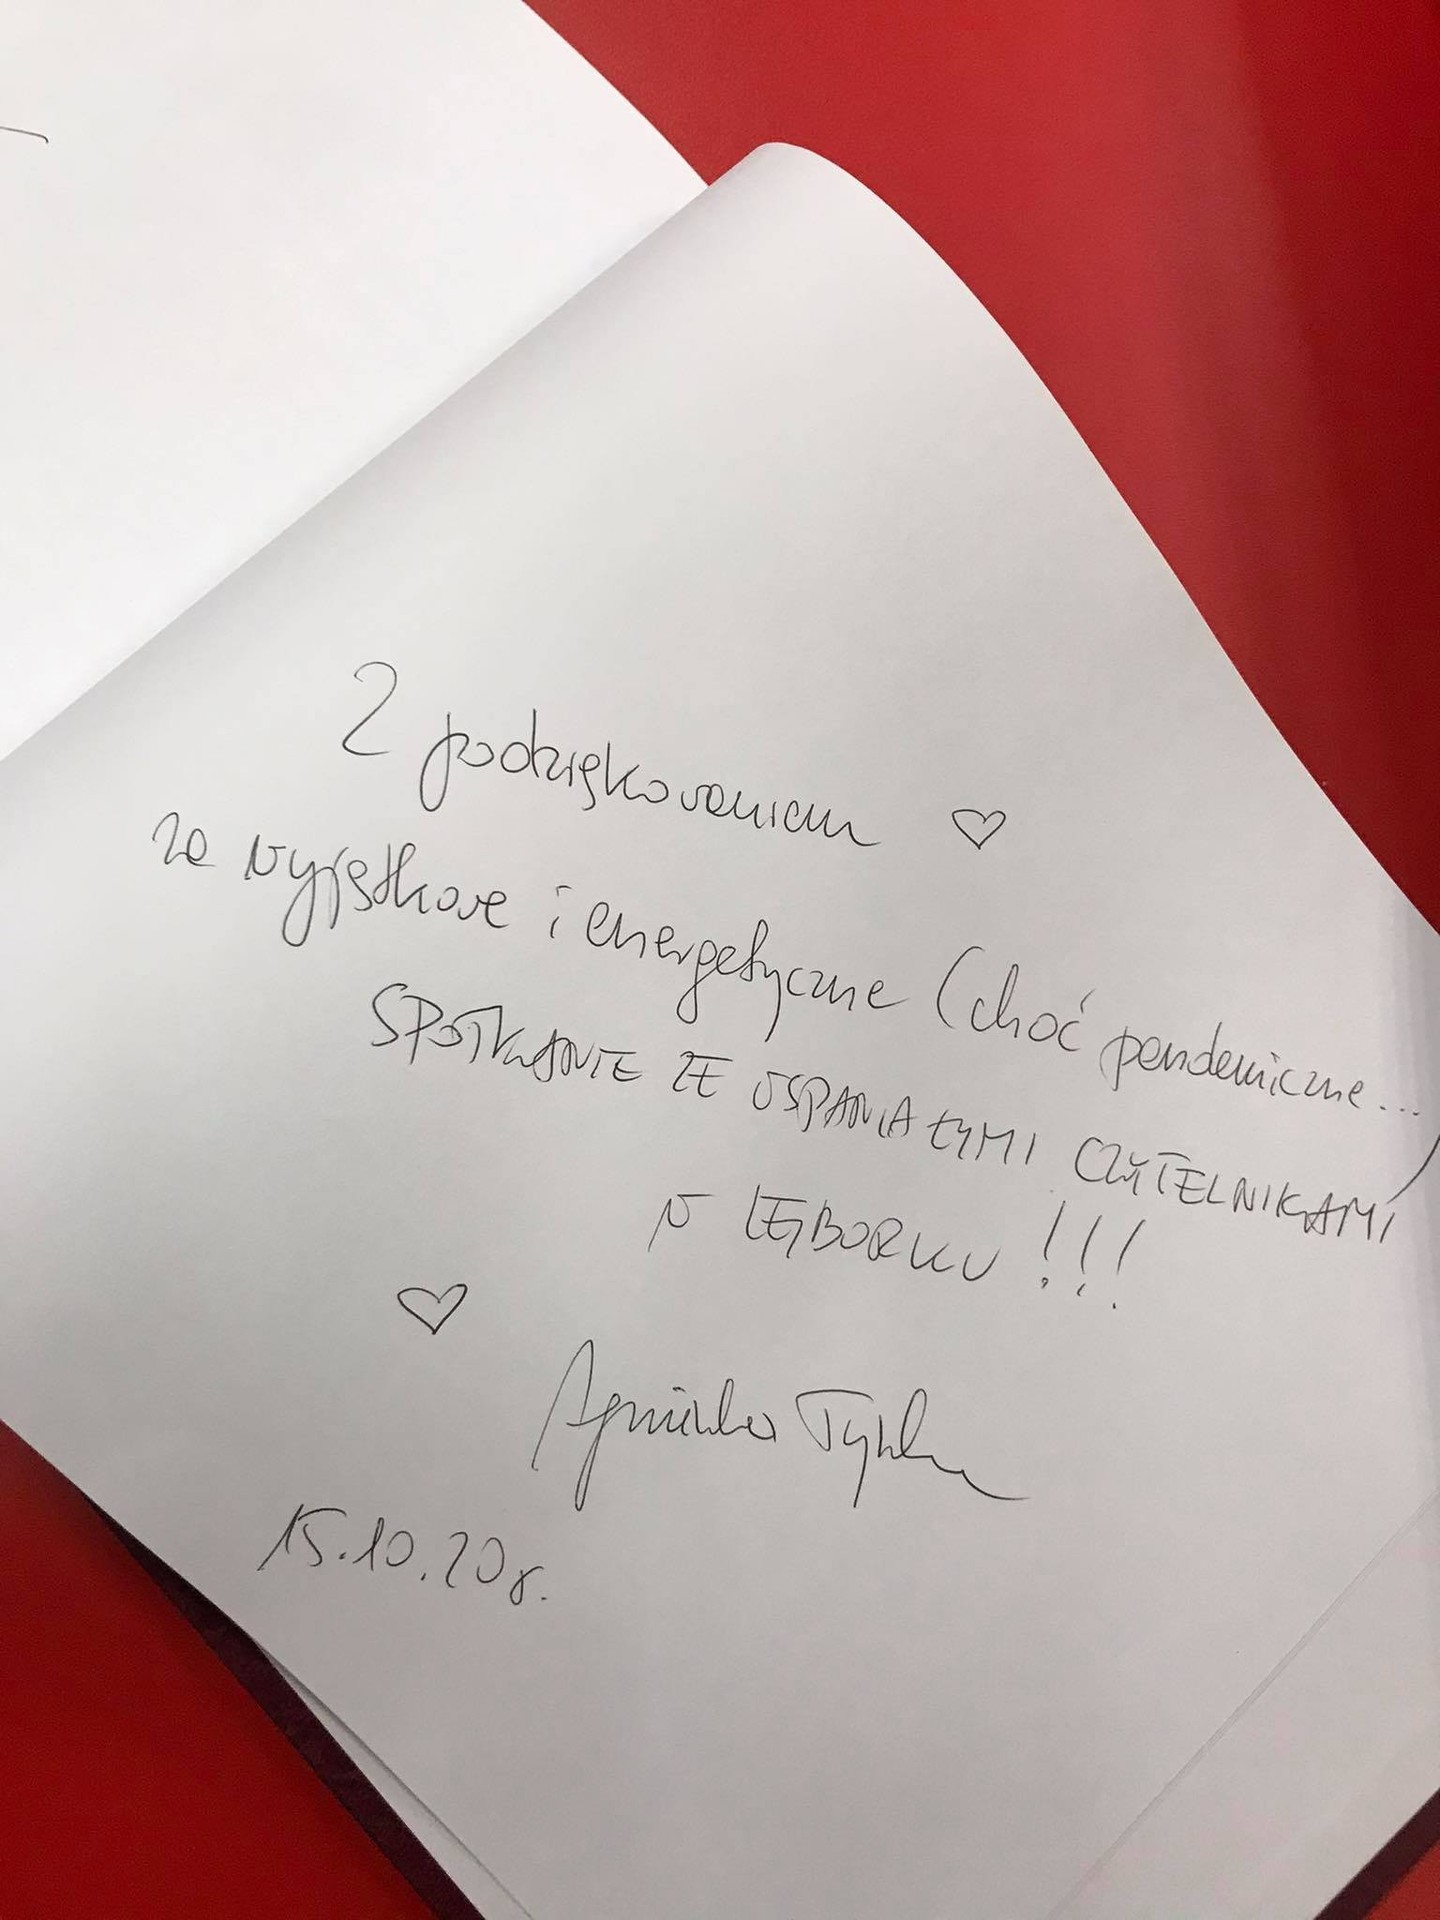 Z podziękowaniem ♡
za wyjątkowe i energetyczne (choć pandemiczne...)
SPOTKANIE ZE WSPANIAŁYMI CZYTELNIKAMI
W LĘBORKU!!!
♡
Agnieszka
15.10.20r.